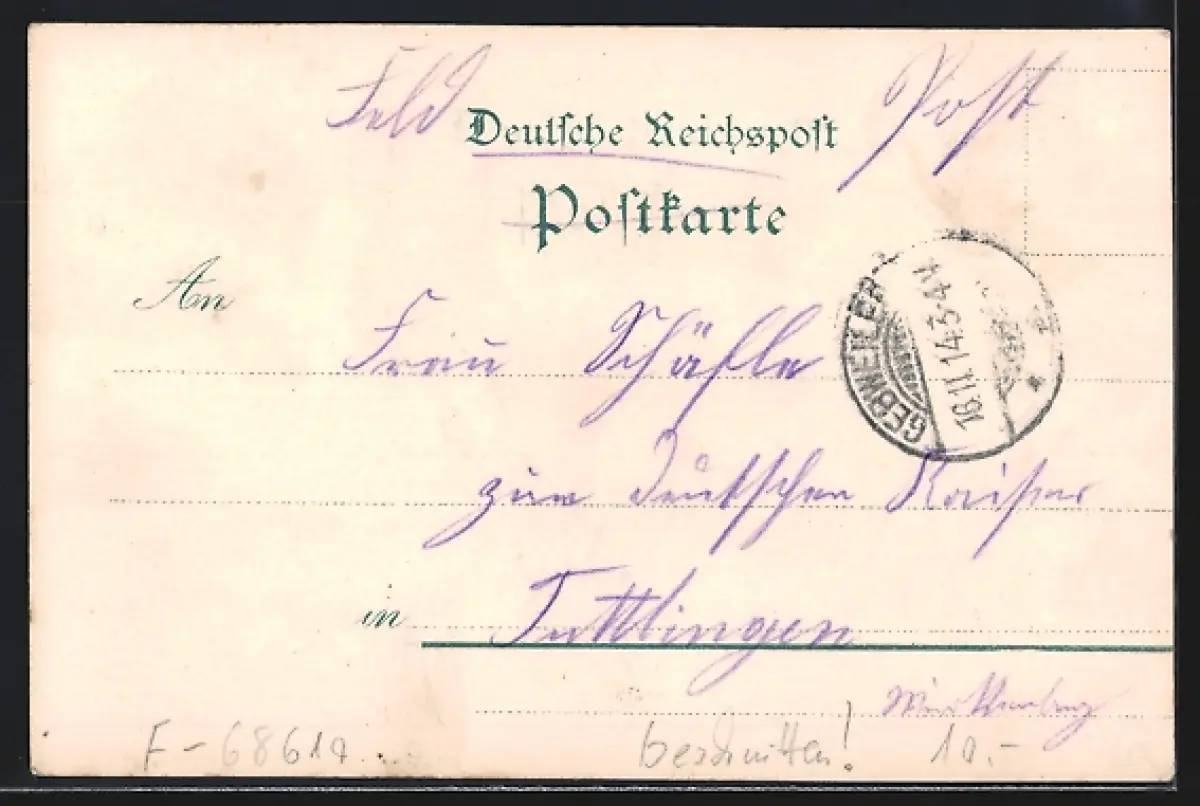 Feld Post
Deutsche Reichspost
Postkarte
An
GEBWEILER
16.11.14.3-4N
Frau Schäfle
zum deutschen Kaiser
in Tuttlingen
Württemberg
F-68619
beschnitten! 10.-